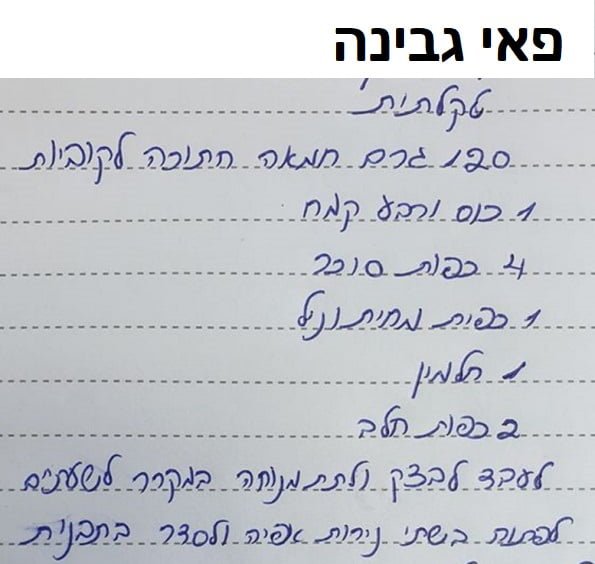 פאי גבינה
טקלתית
120 גרם חמאה חתוכה לקוביות
1 כוס ורבע קמח
4 כפות סוכר
1 כפית מחית וניל
1 חלמון
2 כפות חלב
לעבד לבצק ולתת מנוחה במקרר לשעתיים
לפתוח בשתי נירות אפיה ולסדר בתבנית